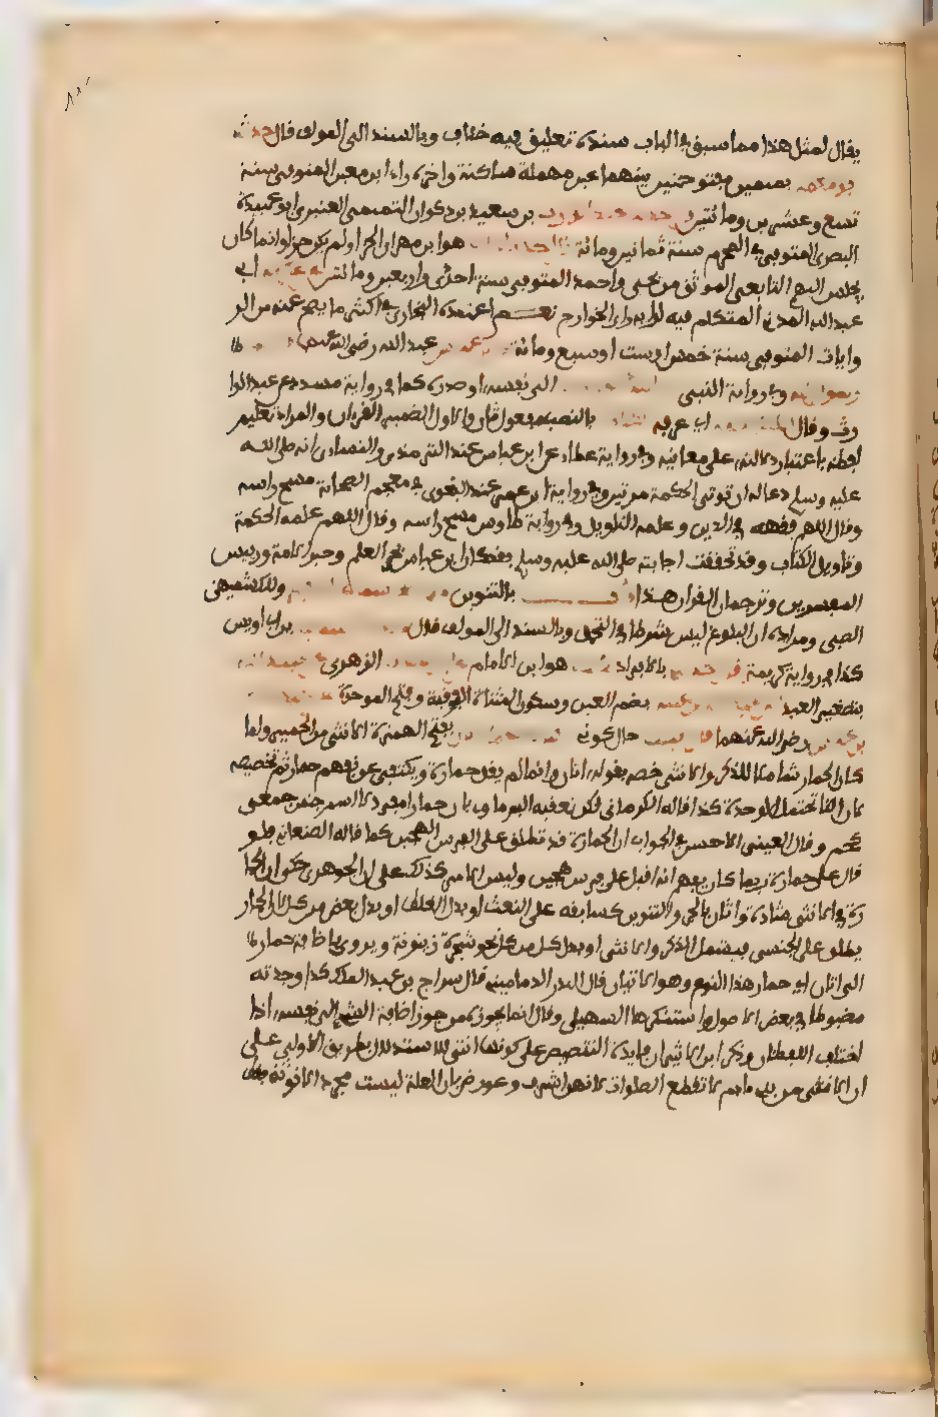 يقال لمثل هذا مما سبق في الباب سنده تعليق فيه خلاف وبالسند الى المولف قال حدثنا
بو معمر بميمين مفتوحتين بينهما عين مهملة ساكنة واخره راء ابو معمر المتوفى سنة
تسع وعشرين ومائتين بن سعيد بن ذكوان التميمى العنبرى ابو عبيدة
البصرى المتوفى في المحرم سنة ثمانين ومائة هو ابن مهران الحذا ولم يكن حذا وانما كان
يجلس اليهم التابعى الموثق من يحيى واحمد المتوفى سنة احدى واربعين ومائة ابى
عبد الله المدنى المتكلم فيه لرايه راى الخوارج نعم اعتمده البخارى في اكثر ما يصح عنه من الر
وايات المتوفى سنة خمس او ست او سبع ومائة عبد الله رضى الله عنهما
وفي رواية النبى الى نفسه او صدره كما في رواية مسدد عن عبد الوا
رث وقال اى عرفه بالنصب مفعول ثان والاول الضمير القران والمراد تعليم
لفظه باعتبار دلالته على معانيه وفي رواية عطاء عن ابن عباس عند الترمذى والنساءى انه صلى الله
عليه وسلم دعا له ان يوتى الحكمة مرتين وفي رواية ابن عمر عند البغوى في معجم الصحابة مسح راسه
وقال اللهم فقهه في الدين وعلمه التاويل وفي رواية طاوس مسح راسه وقال اللهم علمه الحكمة
وتاويل الكتاب وقد تحققت اجابته صلى الله عليه وسلم فقد كان ابن عباس بحر العلم وحبر الامة ورييس
المفسرين وترجمان القران هذا بالتنوين وللكشميهنى
الصبى ومراده ان البلوغ ليس شرطا في التحمل وبالسند الى المولف قال بن ابى اويس
كذا في رواية كريمة بالافراد هو ابن الامام الزهرى
بتصغير العبد بضم العين وسكون المثناة الفوقية وفتح الموحدة
رضى الله عنهما حال كونى بفتح الهمزة الانثى من الحمير ولما
كان الحمار شاملا للذكر والانثى خصه بقوله اتان وانما لم يقل حمارة ويكتفى عن تعميم حمار ثم تخصيصه
لان التا تحتمل الوحدة كذا قاله الكرمانى لكن تعقبه البرماوى بان حمارا مفرد لا اسم جنس جمعى
كتمر وقال العينى الاحسن في الجواب ان الحمارة قد تطلق على الفرس الهجين كما قاله الصنعانى فلو
قال على حمارة ربما كان يفهم انه اقبل على فرس هجين وليس الامر كذلك على ان الجوهرى حكى ان الحما
رة في الانثى شاذة واتان بالجر والتنوين كسابقه على النعت او بدل الغلط او بدل بعض من كل لان الحمار
يطلق على الجنس فيشمل الذكر والانثى او بدل كل من كل نحو شجرة زيتونة ويروى باضافة حمار
الى اتان اى حمار هذا النوع وهو الاتان قال البدر الدمامينى قال سراج بن عبد الملك كذا وجدته
مضبوطا في بعض الاصول واستنكرها السهيلى وقال انما يجوزه من جوز اضافة الشى الى نفسه اذا
اختلف اللفظان وذكر ابن الاثير ان فايدة التنصيص على كونها انثى للاستدلال بطريق الاولى على
ان الانثى من بنى ادم لا تقطع الصلواة لانهن اشرف وعورض بان العلة ليست مجرد الانوثة فقط